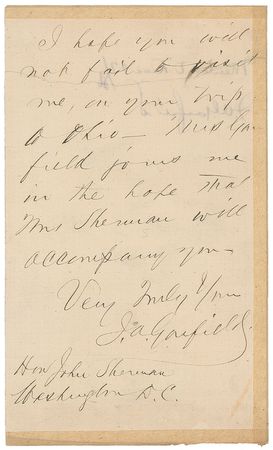 I hope you will
not fail to visit
me, on your trip
to Ohio— Mrs Gar
field joins me
in the hope that
Mrs Sherman will
accompany you—
Very Truly Yours
J. A. Garfield.
Hon John Sherman
Washington D.C.